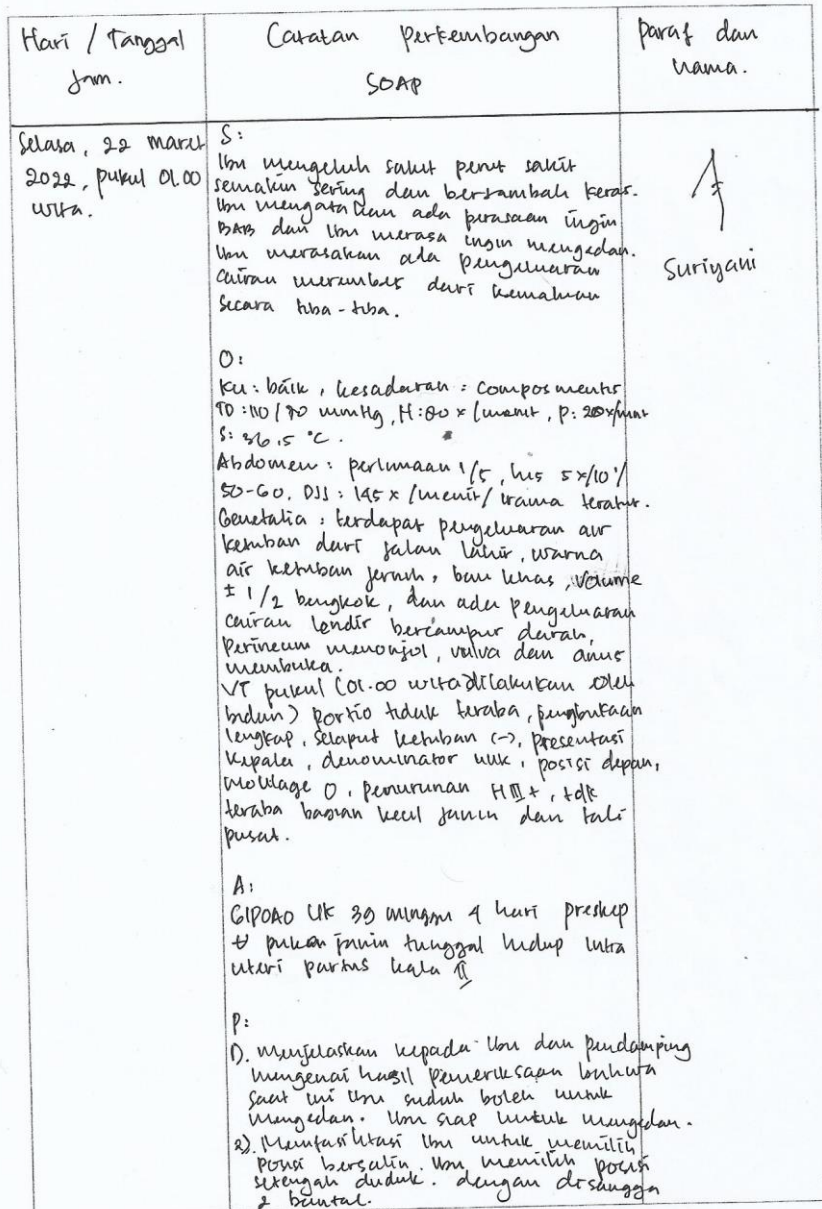 Hari / Tanggal
Jam.
Catatan Perkembangan
SOAP
Paraf dan
nama.
Selasa, 22 maret
2022, pukul 01.00
wita.
S:
Ibu mengeluh sakit perut sakit
semakin sering dan bertambah keras.
Ibu mengatakan ada perasaan ingin
BAB dan Ibu merasa ingin mengedan.
Ibu merasakan ada pengeluaran
cairan merembes dari kemaluan
secara tiba-tiba.
Suriyani
O:
KU: baik, kesadaran: Composmentis
TD: 110/70 mmHg, N: 80 x/menit, P: 20x/mnt
S: 36,5 °C.
Abdomen: perlimaan 1/5, his 5x/10'/
50-60, DJJ: 145 x/menit/ irama teratur.
Genetalia: terdapat pengeluaran air
ketuban dari jalan lahir, warna
air ketuban jernih, bau khas, volume
± 1/2 bengkok, dan ada pengeluaran
cairan lendir bercampur darah,
Perineum menonjol, vulva dan anus
membuka.
VT pukul (01.00 wita dilakukan oleh
bidan) portio tidak teraba, pembukaan
lengkap, selaput ketuban (-), presentasi
kepala, denominator uuk, posisi depan,
Moulage 0, penurunan H III +, tdk
teraba bagian kecil janin dan tali
pusat.
A:
G1P0A0 UK 39 minggu 4 hari preskep
U puka janin tunggal hidup intra
uteri partus kala II
P:
1). Menjelaskan kepada Ibu dan pendamping
mengenai hasil pemeriksaan bahwa
saat ini Ibu sudah boleh untuk
mengedan. Ibu siap untuk mengedan.
2). Memfasilitasi Ibu untuk memilih
posisi bersalin. Ibu memilih posisi
setengah duduk. dengan disangga
2 bantal.